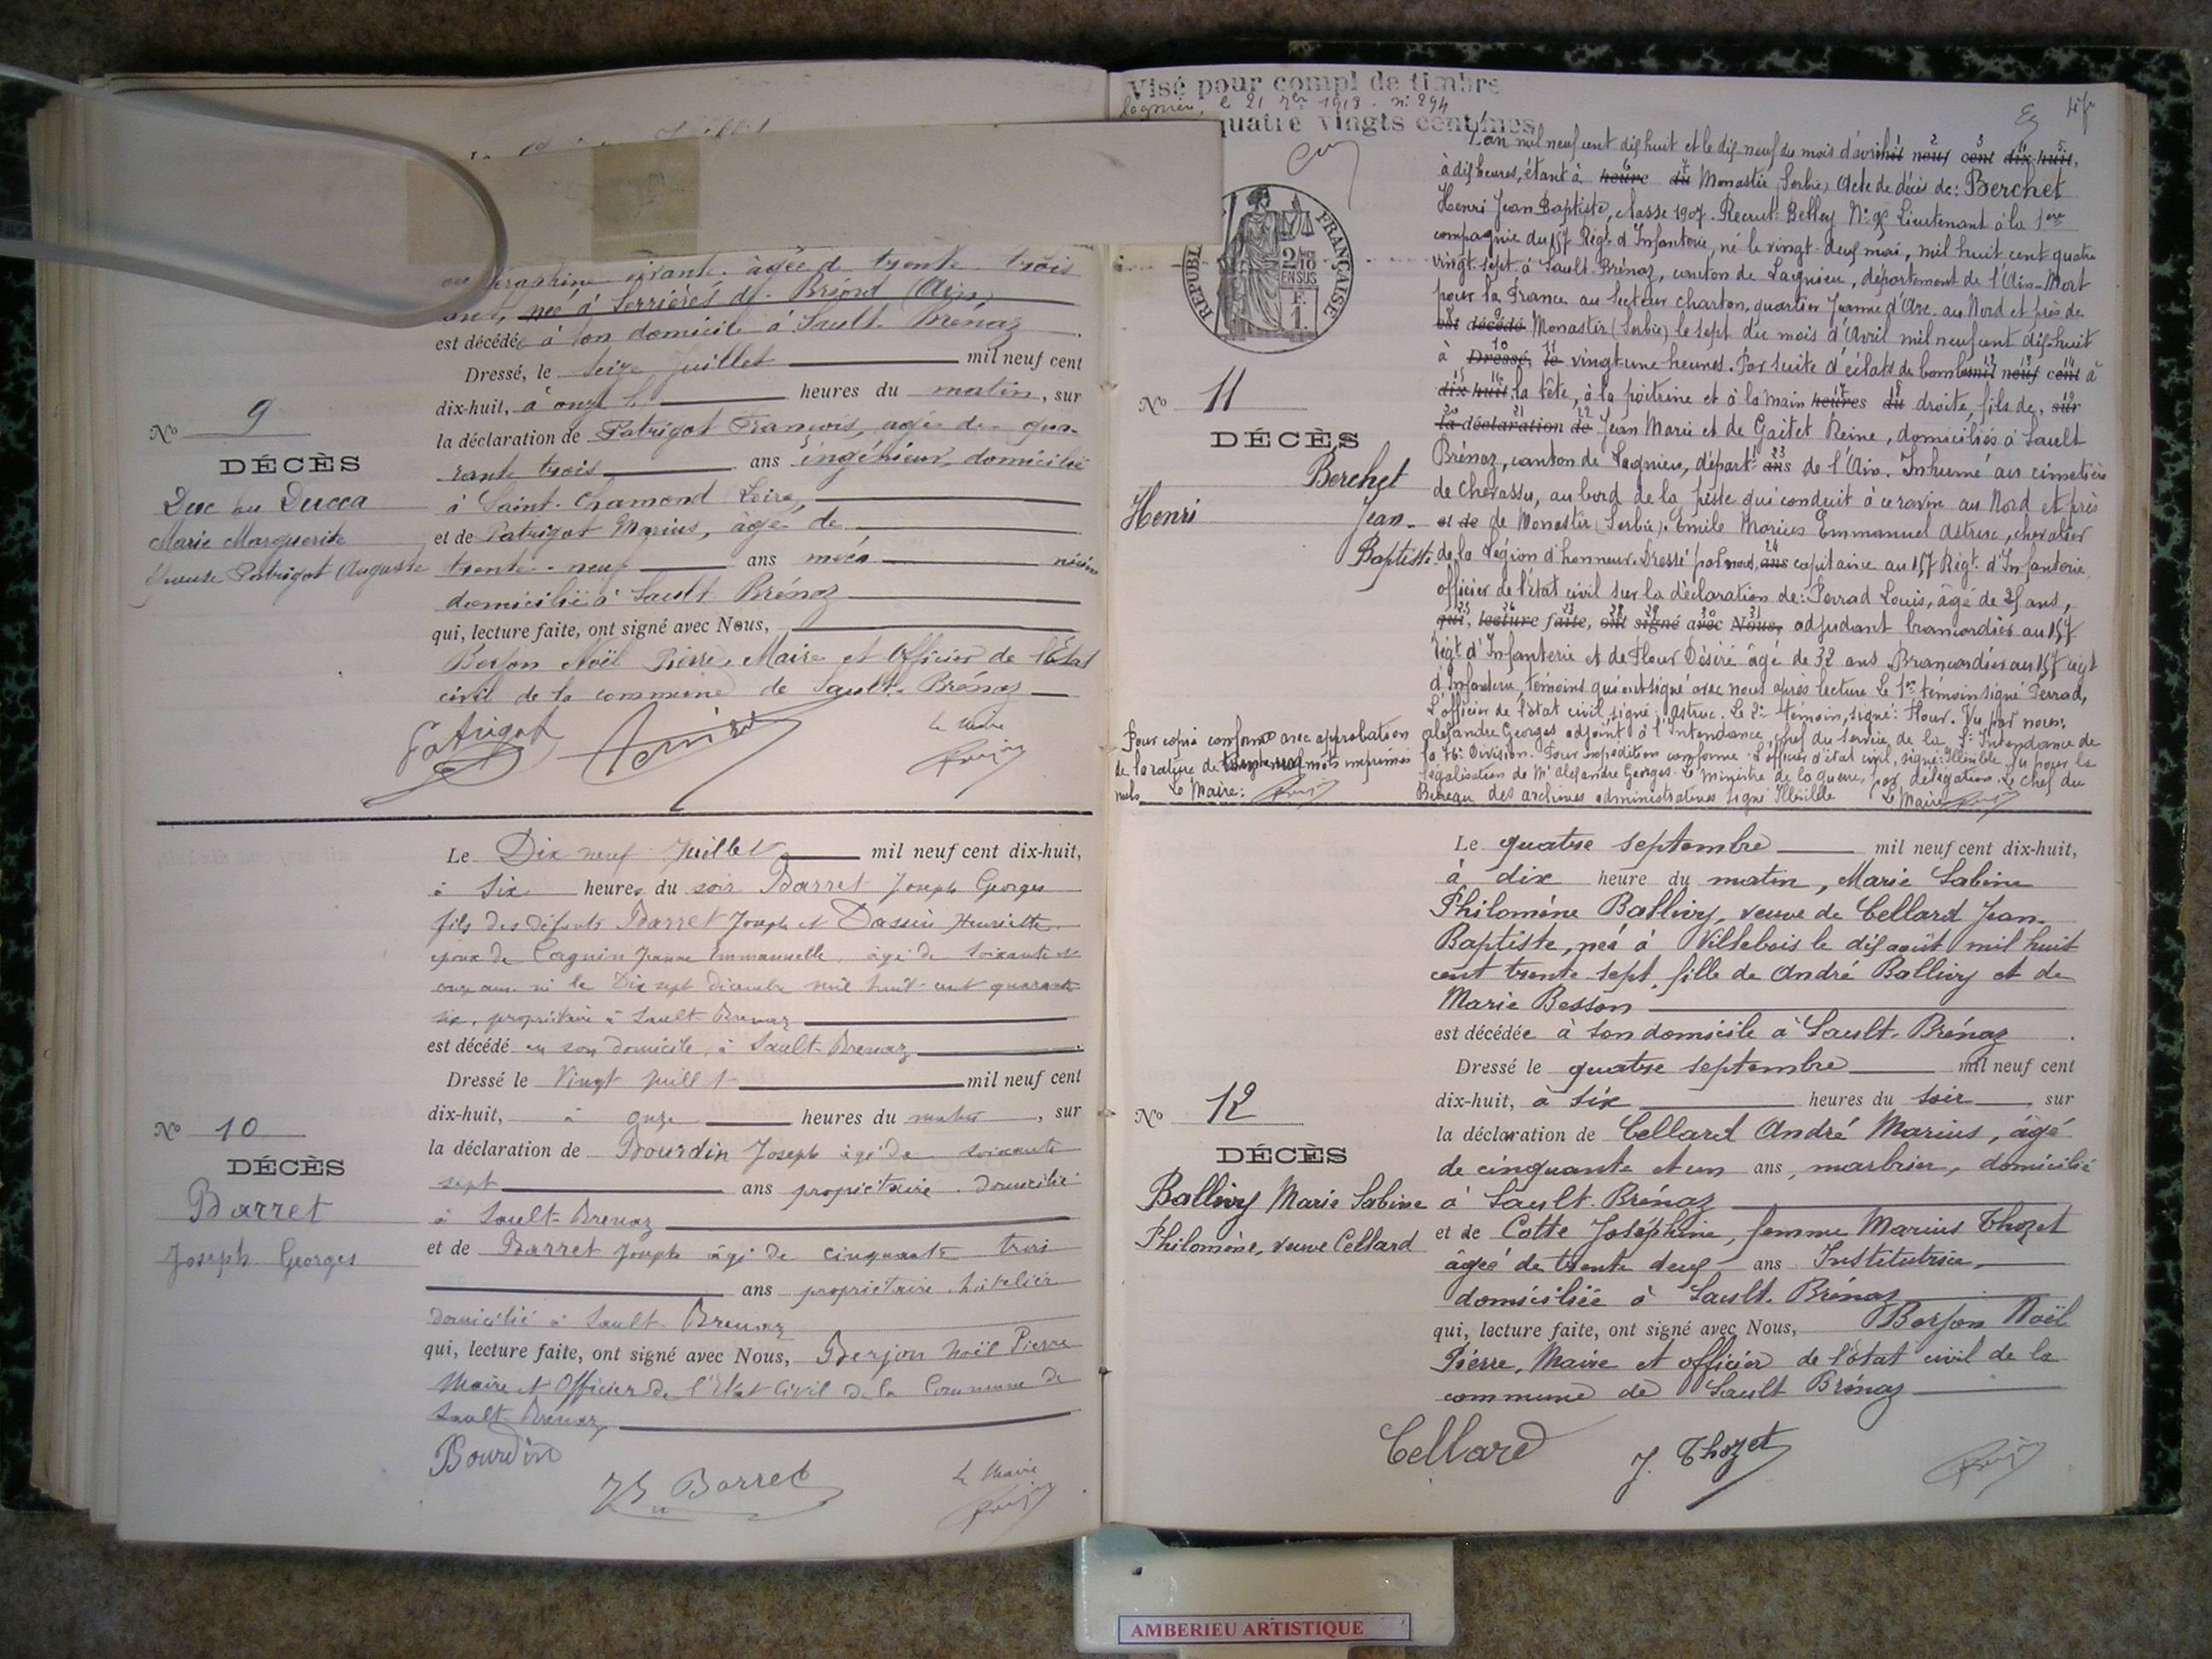 âgée de trente trois
née à Serrières de Briord (Ain)
est décédée à son domicile à Sault-Brénaz
Dressé, le Seize Juillet mil neuf cent
dix-huit, à onze heures du matin, sur
la déclaration de Patrigot François, agé de qua-
rante trois ans ingénieur, domicilié
à Saint-Chamond (Loire)
et de Patrigot Marius, âgé de
trente-neuf ans
domicilié à Sault Brénaz
qui, lecture faite, ont signé avec Nous,
Berjon Noël Pierre, Maire et Officier de l'Etat
civil de la commune de Sault-Brénaz
Patrigot
Le Maire
No 9
DÉCÈS
Duc ou Ducca
Marie Marguerite
épouse Patrigot Auguste
Le Dix neuf Juillet mil neuf cent dix-huit,
à Six heures du soir Barret Joseph Georges
fils des défunts Barret Joseph et Dassin Henriette
époux de Cagnin Jeanne Emmanuelle, âgé de soixante et
onze ans né le Dix sept décembre mil huit cent quarante
six, propriétaire à Sault-Brenaz
est décédé en son domicile à Sault-Brenaz
Dressé le Vingt Juillet mil neuf cent
dix-huit, à onze heures du matin, sur
la déclaration de Bourdin Joseph âgé de soixante
sept ans propriétaire domicilié
à Sault-Brenaz
et de Barret Joseph âgé de cinquante trois
ans propriétaire hôtelier
domicilié à Sault-Brenaz
qui, lecture faite, ont signé avec Nous, Berjon Noël Pierre
Maire et Officier de l'Etat Civil de la Commune de
Sault-Brenaz
Bourdin
Barret
Le Maire
No 10
DÉCÈS
Barret
Joseph Georges
Visé pour compl de timbre
Lagnieu, le 21 1918 - n° 294
quatre vingts centimes
RÉPUBL FRANÇAISE
2/10 EN SUS
F.
1.
No 11
DÉCÈS
Berchet
Henri Jean-
Baptiste
L'an mil neuf cent dix huit et le dix neuf du mois d'avril mil neuf cent dix-huit,
à dix heures, étant à heure du Monastir (Serbie) Acte de décès de: Berchet
Henri Jean Baptiste, classe 1907. Recrut: Belley N° Lieutenant à la 1ère
compagnie du 157 Régt d'Infanterie, né le vingt-deux mai, mil huit cent quatre
vingt-sept à Sault-Brénaz, canton de Lagnieu, département de l'Ain - Mort
pour la France au Secteur Charton, quartier Jeanne d'Arc au Nord et près de
est décédé Monastir (Serbie) le sept du mois d'Avril mil neuf cent dix-huit
à Dressé, le vingt-une heures. Par suite d'éclats de bombe mil neuf cent à
dix-huit, la tête, à la poitrine et à la main heures du droite, fils de, sur
la déclaration de Jean Marie et de Gaitet Reine, domiciliés à Sault
Brénaz, canton de Lagnieu, départt ans de l'Ain. Inhumé au cimetière
de Chevassu, au bord de la piste qui conduit à ce ravin au Nord et près
et de de Monastir (Serbie). Emile Marius Emmanuel Astruc, chevalier
de la Légion d'honneur. Dressé par nous, ans capitaine au 157 Régt d'Infanterie
officier de l'état civil sur la déclaration de: Perrad Louis, âgé de 25 ans,
qui, lecture faite, ont signé avec Nous, adjudant brancardier au 157
régt d'Infanterie et de Flour Désiré âgé de 32 ans. Brancardier au 157 régt
d'Infanterie, témoins qui ont signé avec nous après lecture. Le 1er témoin signé Perrad,
L'officier de l'état civil, signé: Astruc. Le 2e témoin, signé: Flour. Vu par nous:
Alexandre Georges adjoint à l'Intendance, chef du service de la S: Intendance de
la 76e Division. Pour expédition conforme. L'officier d'état civil, signé: Illisible. Vu pour la
légalisation de Mr Alexandre Georges. Le ministre de la guerre, par délégation. Le chef du
Bureau des archives administratives signé Illisible Le Maire
Pour copie conforme avec approbation
de la rature de mots imprimés
nuls. Le Maire:
Le quatre septembre mil neuf cent dix-huit,
à dix heure du matin, Marie Sabine
Philomène Ballivy, veuve de Cellard Jean-
Baptiste, née à Villebois le dix août mil huit
cent trente sept, fille de André Ballivy et de
Marie Besson
est décédée à son domicile à Sault-Brénaz
Dressé le quatre septembre mil neuf cent
dix-huit, à six heures du soir sur
la déclaration de Cellard André Marius, âgé
de cinquante et un ans, marbrier, domicilié
à Sault-Brénaz
et de Cotte Joséphine, femme Marius Thozet
âgée de trente deux ans Institutrice,
domiciliée à Sault-Brénaz
qui, lecture faite, ont signé avec Nous, Berjon Noël
Pierre, Maire et officier de l'état civil de la
commune de Sault Brénaz
Cellard
J. Thozet
No 12
DÉCÈS
Ballivy Marie Sabine
Philomène, veuve Cellard
AMBERIEU ARTISTIQUE